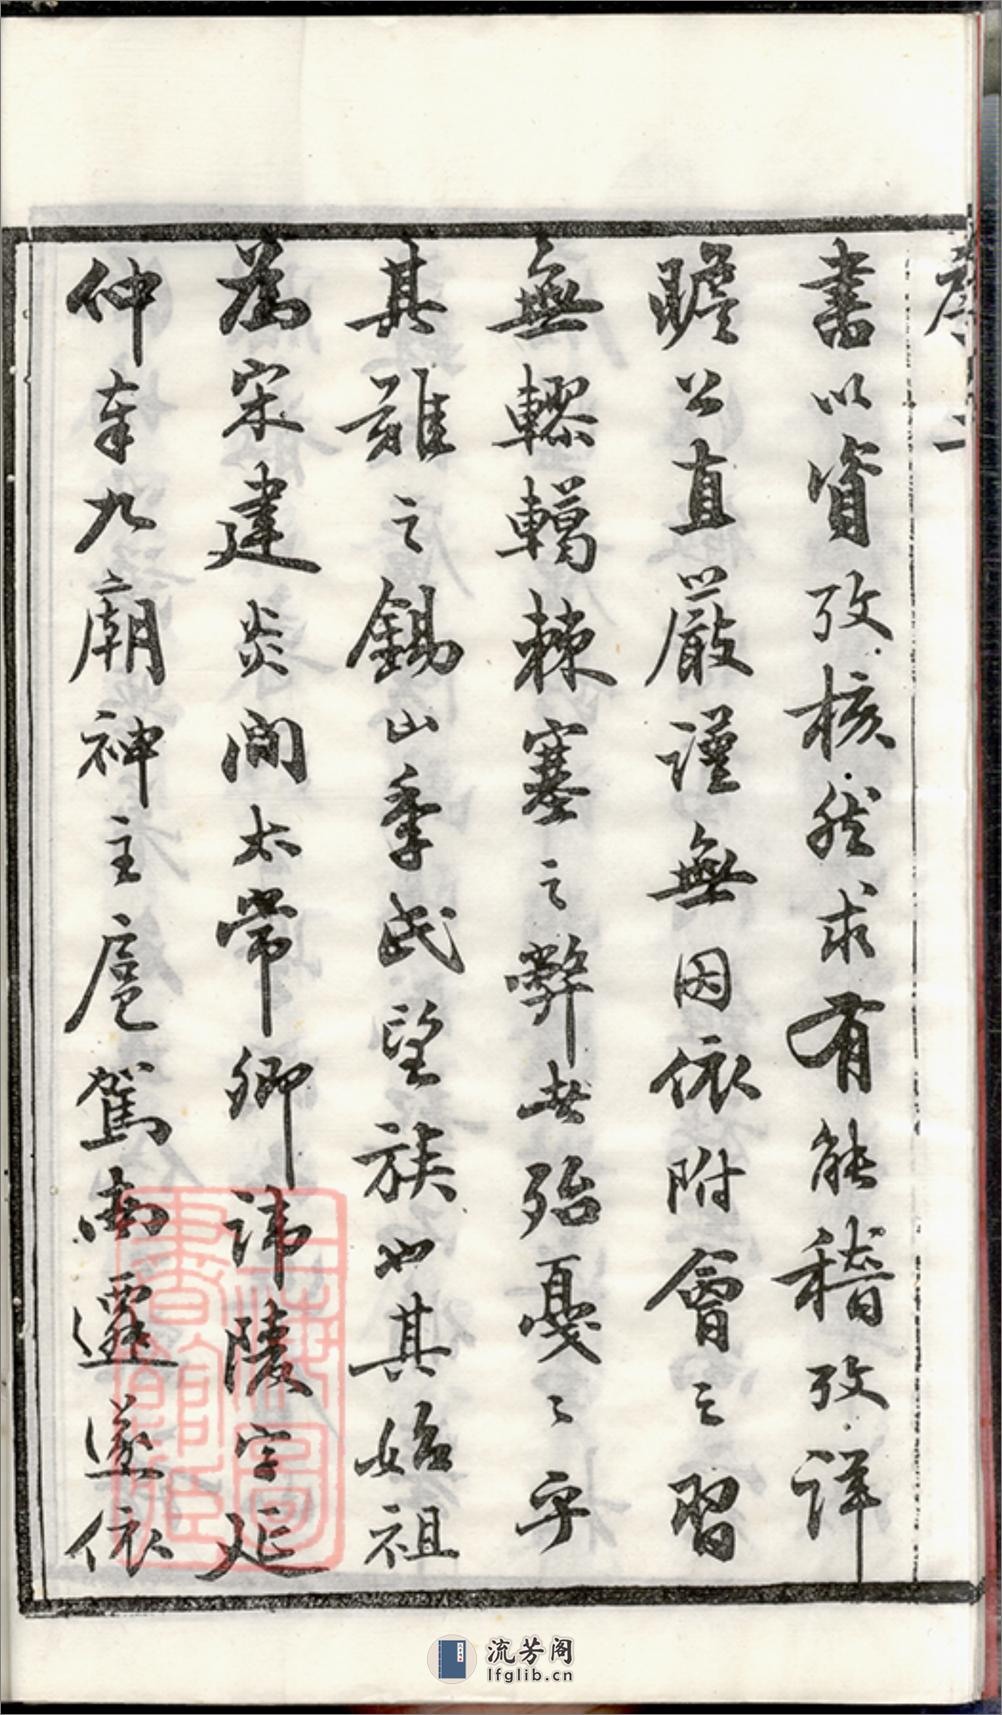 序 二
書以資攷核然求有能稽攷詳
贍公直嚴謹無因依附會之習
無轇轕棘塞之弊者殆戛〻乎
其難之錫山季氏望族也其始祖
為宋建炎間太常卿諱陵字延
仲奉九廟神主扈駕南遷遂依
上海圖
書館藏
流芳阁
lfglib.cn